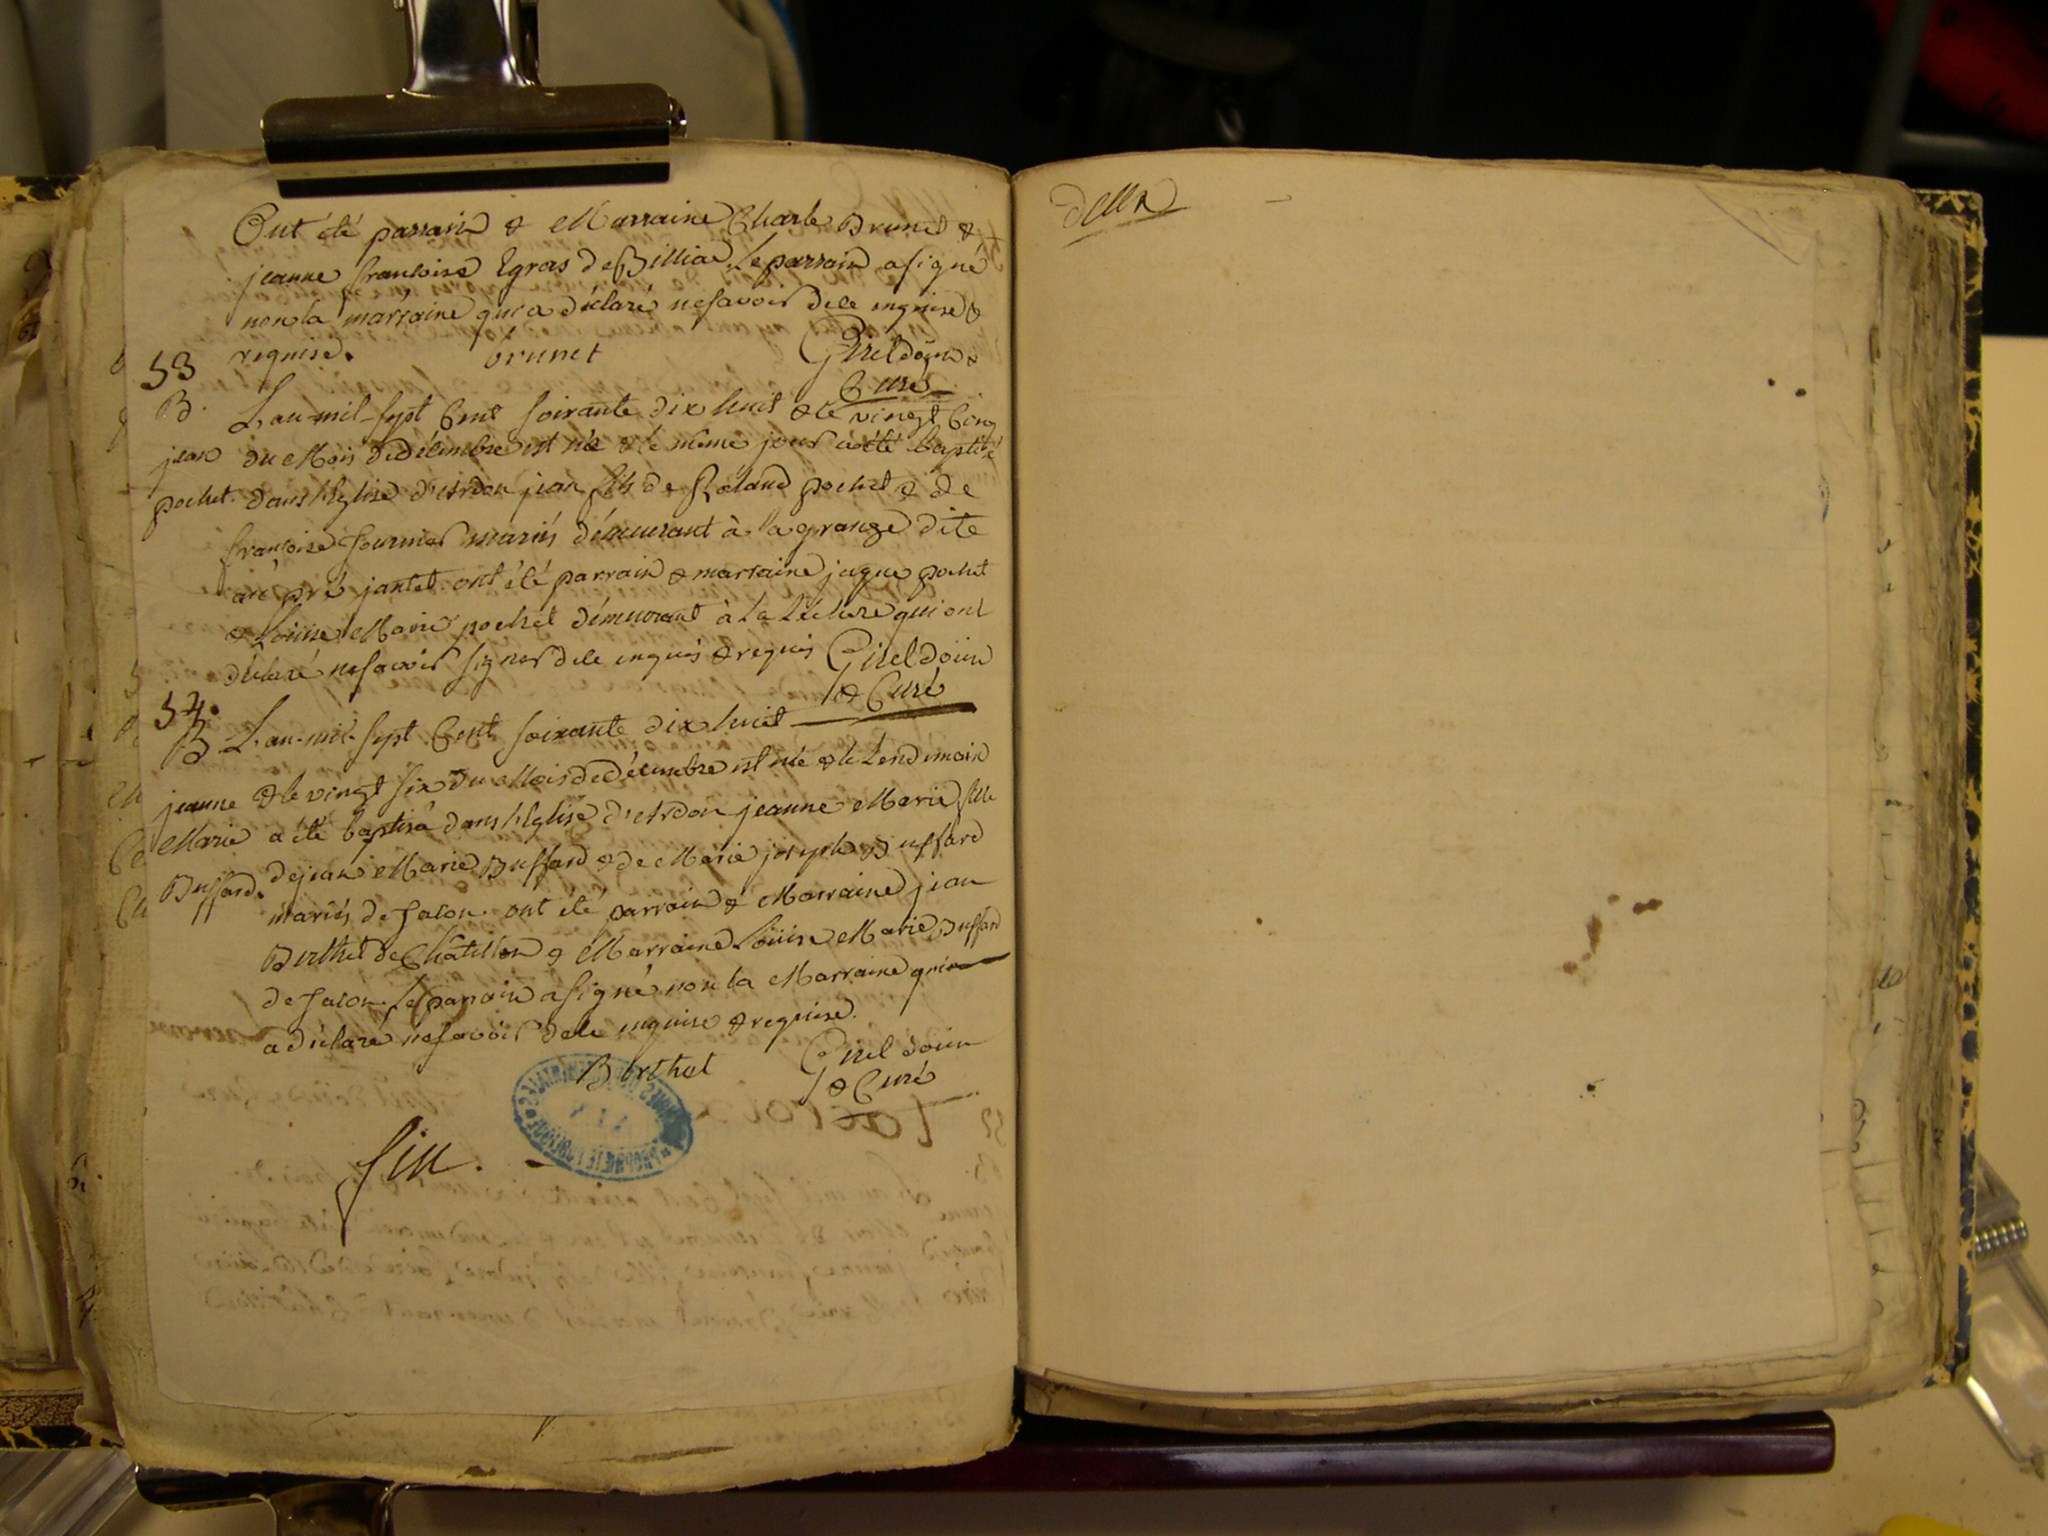 Ont été parrain & Marraine Charle Brunet &
jeanne francoise Egras de Billia. Le parrain a signé
non la marraine qui a déclaré ne savoir de ce enquise &
requise. brunet Girel doüin &
Curé
53
B. L'an mil sept Cent soixante dix huit & le vingt Cinq
jean du Mois de décembre est née & le même jour a été baptisé
pochet. dans l'Eglise d'Ardon jean fils de Roland pochet & de
francoise fournier mariés démeurant à la grange dite
au pré jantet. ont été parrain & marraine jaque pochet
& Loüise Marie pochet démeurant à La Léchere qui ont
déclaré ne savoir signer de ce enquis & requis Girel doüin
& Curé
54.
B L'an mil sept Cent soixante dix huit
jeanne & le vingt six du Mois de décembre est née & le Lendemain
Marie a été baptisé dans l'Eglise d'Ardon jeanne Marie fille
Buffard. de jean Marie Buffard & de Marie joseph Buffard
mariés de falon. ont été parrain & Marraine jean
Berthet de Châtillon & Marraine Loüise Marie Buffard
de falon. Le parrain a signé non la Marraine qui
a déclaré ne savoir de ce enquise & requise.
Berthet Girel doüin
& Curé
fin.